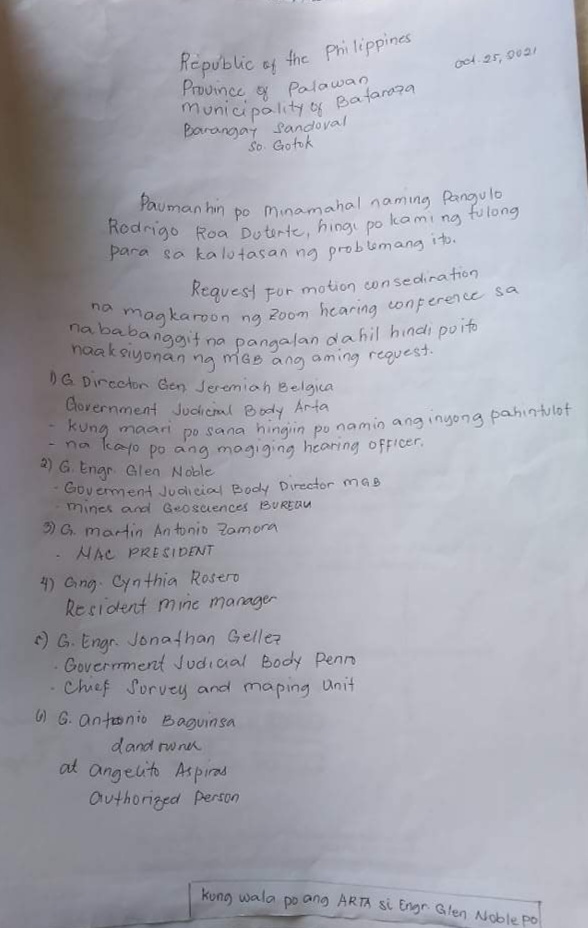 Republic of the Philippines
Oct. 25, 2021
Province of Palawan
municipality of Bataraza
Barangay Sandoval
So. Gotok
Paumanhin po minamahal naming Pangulo
Rodrigo Roa Duterte, hingi po kami ng tulong
para sa kalutasan ng problemang ito.
Request For motion consediration
na magkaroon ng zoom hearing conference sa
nababanggit na pangalan dahil hindi po ito
naaksiyonan ng MGB ang aming request.
1) G. Director Gen Jeremiah Belgica
Government Judicial Body Arta
- kung maari po sana hingiin po namin ang inyong pahintulot
- na kayo po ang magiging hearing officer.
2) G. Engr. Glen Noble
- Goverment Judicial Body Director MGB
- mines and Geosciences BUREAU
3) G. martin Antonio Zamora
- NAC PRESIDENT
4) Gng. Cynthia Rosero
Resident mine manager
5) G. Engr. Jonathan Gellez
- Government Judicial Body Penro
- Chief Survey and maping Unit
6) G. Antonio Baguinsa
at Angelito Aspiras
Authorized Person
kung wala po ang ARTA si Engr. Glen Noble po